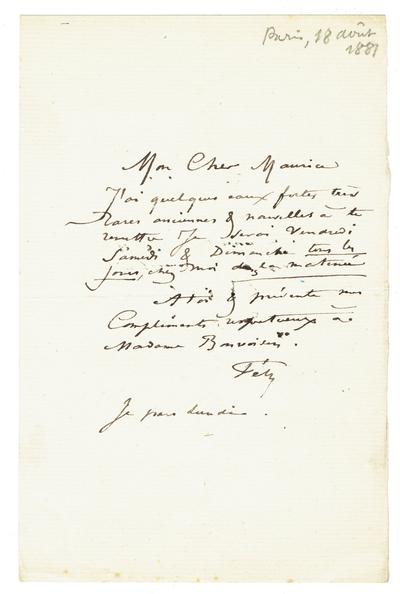 Paris, 18 août
1881
Mon Cher Maurice
J'ai quelques eaux fortes très
rares anciennes & nouvelles à te
remettre Je serai Vendredi
Samedi & Dimanche tous les
jours, chez moi la matinée
A toi & présente mes
Compliments respectueux à
Madame
Fély
Je pars Lundi.